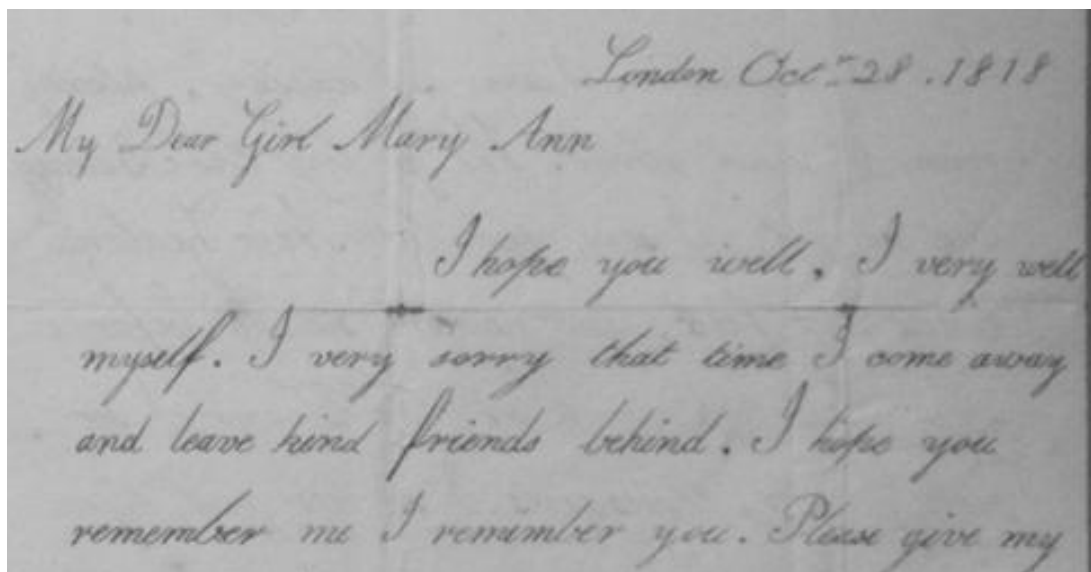 London Octr 28. 1818
My Dear Girl Mary Ann
I hope you well. I very well
myself. I very sorry that time I come away
and leave kind friends behind. I hope you
remember me I remember you. Please give my